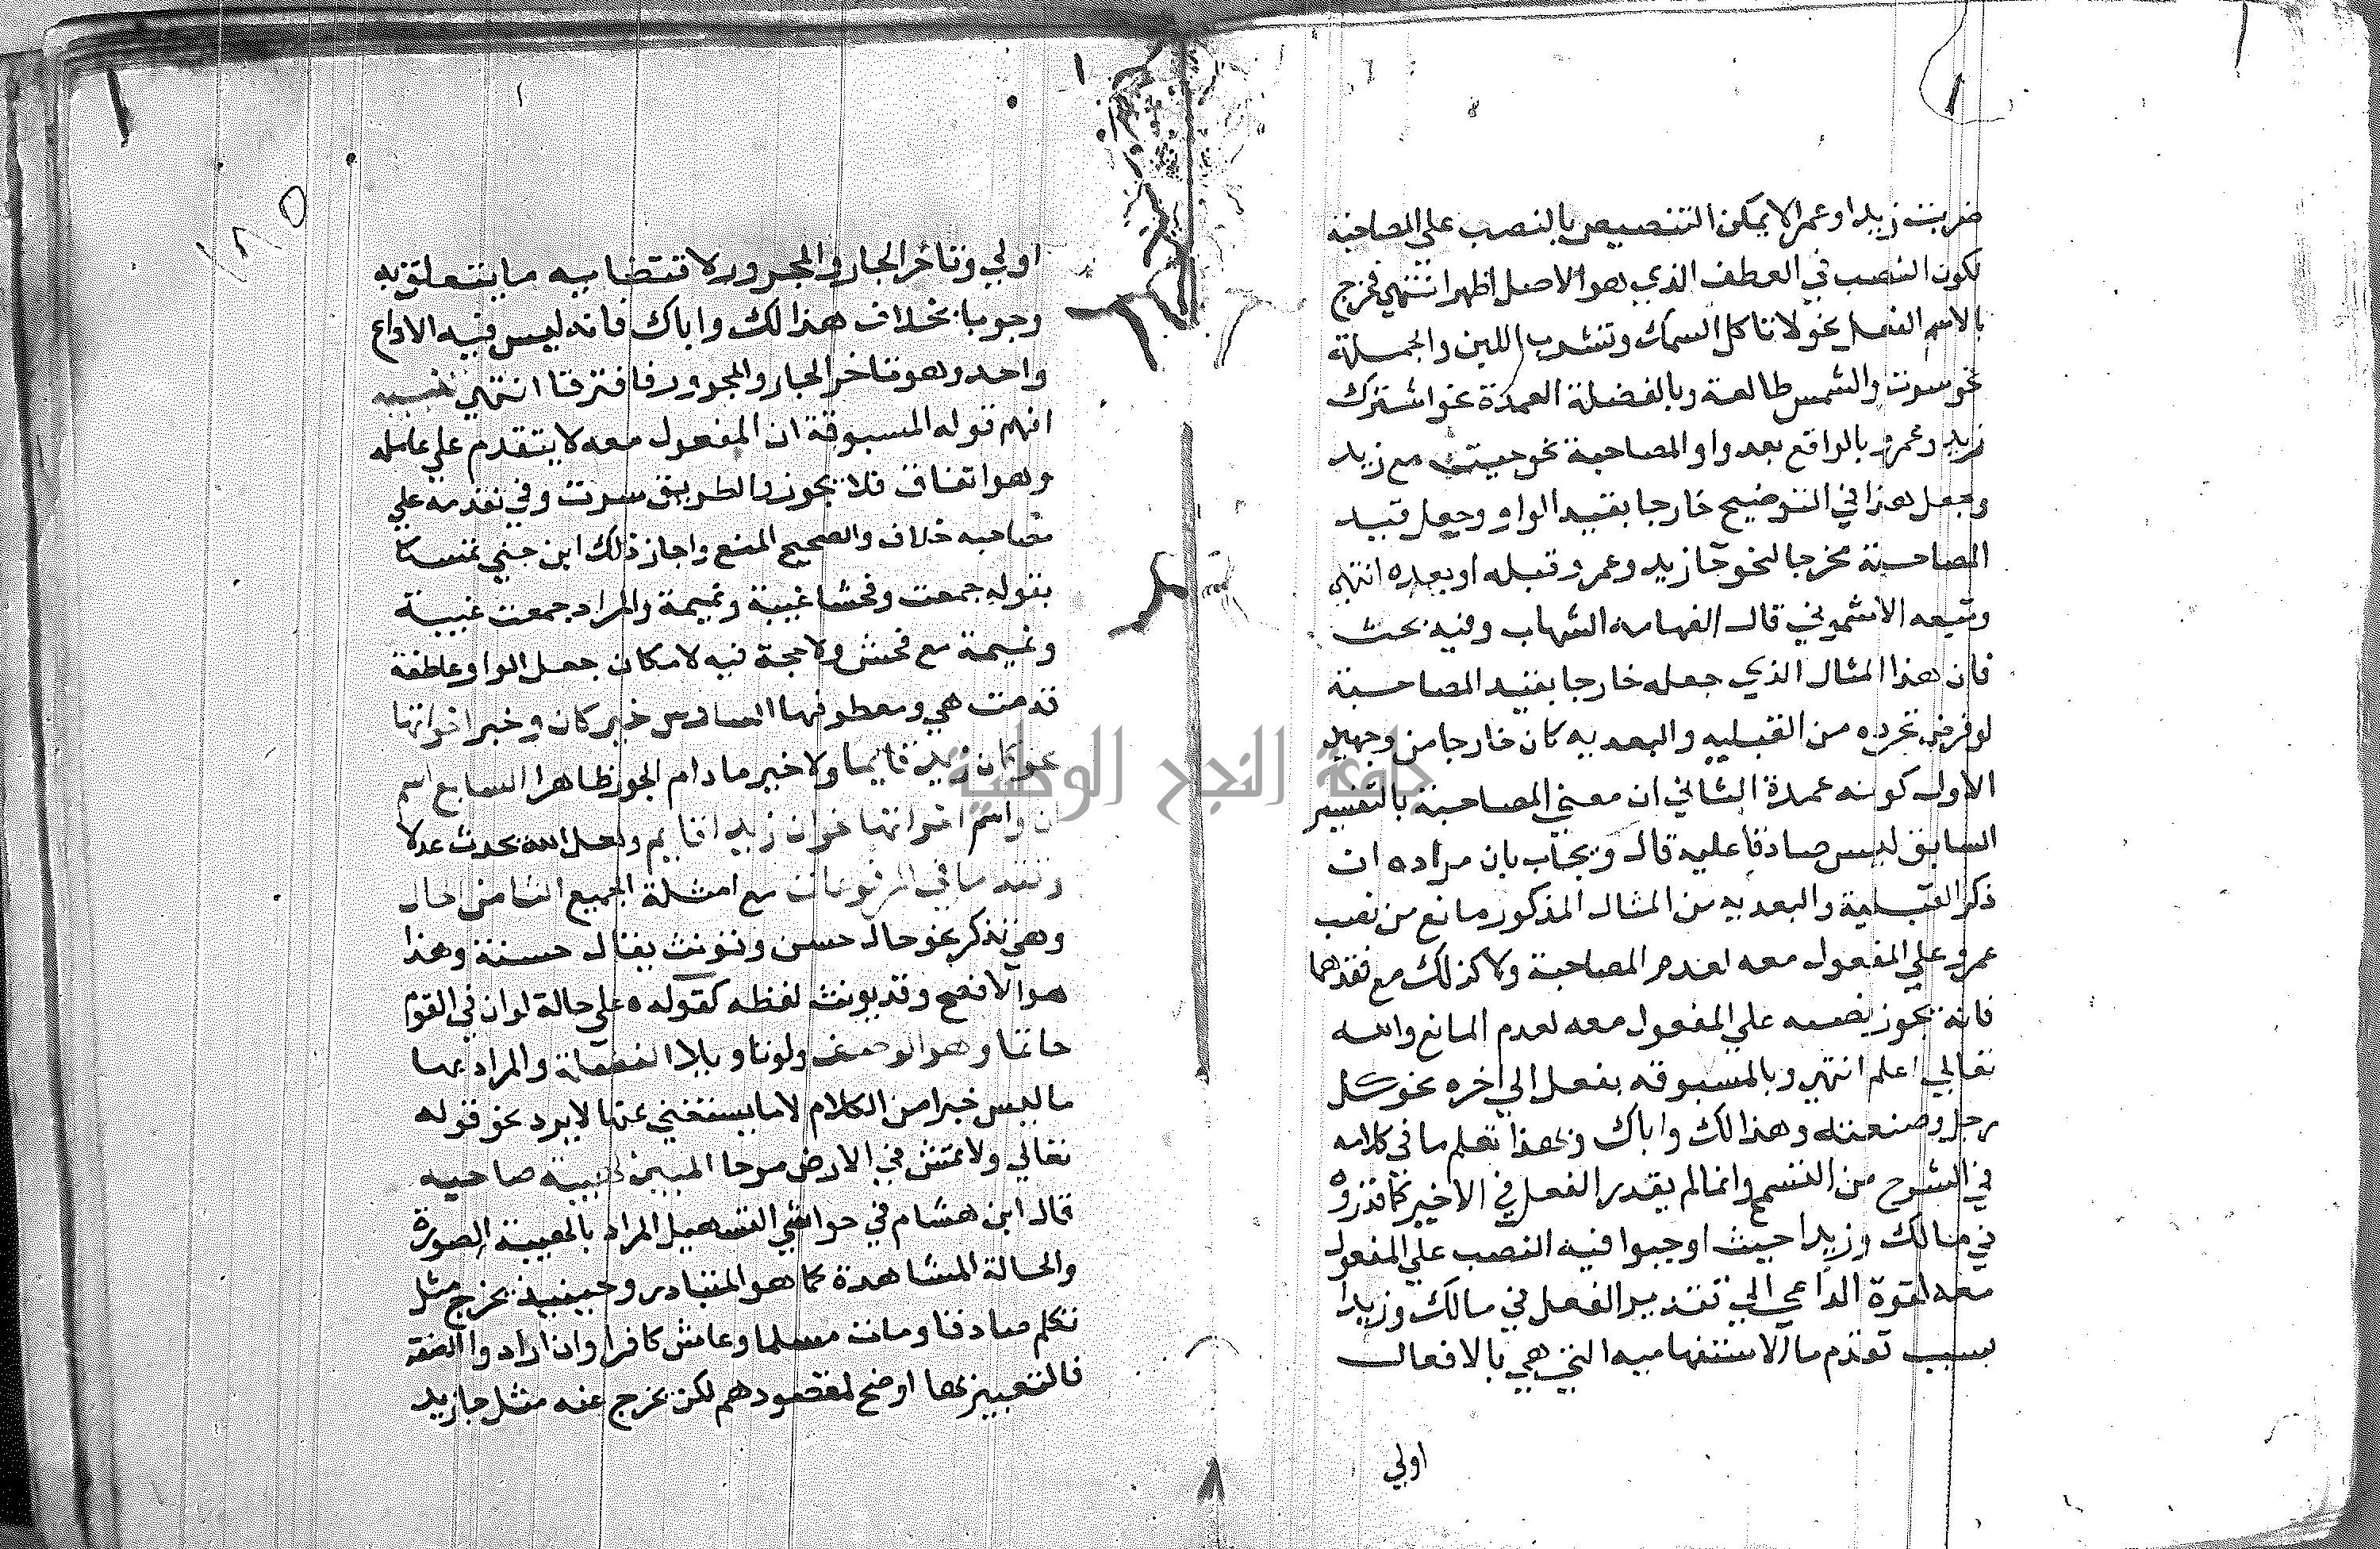 ضربت زيدا وعمرا لا يمكن التنصيص بالنصب علي المصاحبة
لكون النصب في العطف الذي هو الاصل اظهر انتهي فخرج
بالاسم الفعل نحو لا تاكل السمك وتشرب اللبن والجملة
نحو سرت والشمس طالعة وبالفضلة العمدة نحو اشترك
زيد وعمرو بالواقع بعد واو المصاحبة نحو جيت مع زيد
وجعل هذا في التوضيح خارجا بقيد الواو وجعل قيد
المصاحبة مخرجا لنحو جا زيد وعمرو قبله او بعده انتهي
وتبعه الاشموني قال الفهامه الشهاب وفيه بحث
فان هذا المثال الذي جعله خارجا بقيد المصاحبة
لو فرض تجرده من القبليه والبعديه كان خارجا من وجهين
الاول كونه عمدة الثاني ان معني المصاحبة بالتفسير
السابق ليس صادقا عليه قال ويجاب بان مراده ان
ذكر القبلية والبعديه من المثال المذكور مانع من نصب
عمرو علي المفعول معه لعدم المصاحبة ولا كذلك مع فقدهما
فانه يجوز نصبه علي المفعول معه لعدم المانع والله
تعالي اعلم انتهي وبالمسبوقه بفعل الي اخره نحو كل
رجل وصنعته وهذا لك واباك وبهذا تعلم ما في كلامه
في الشرح من التسمح وانما لم يقدر الفعل في الاخير كما قدروه
في مالك وزيدا حيث اوجبوا فيه النصب علي المفعول
معه لقوة الداعي الي تقدير الفعل في مالك وزيدا
بسبب تقدم ما الاستفهاميه التي هي بالافعال
اولي
اولي وتاخر الجار والمجرور لاقتضاييه ما يتعلق به
وجوبا بخلاف هذا لك واباك فانه ليس فيه الا داع
واحد وهو تاخر الجار والمجرور فافترقا انتهي تنبيه
افهم قوله المسبوقة ان المفعول معه لا يتقدم علي عامله
وهو اتفاق فلا يجوز والطريق سرت وفي تقدمه علي
مصاحبه خلاف والصحيح المنع واجاز ذلك ابن جني تمسكا
بقوله جمعت وفحشا غيبة ونميمة والمراد جمعت غيبة
ونميمة مع فحش ولا حجة فيه لامكان جعل الواو عاطفة
قدمت هي ومعطوفها السادس خبر كان وخبر اخواتها
نحو كان زيد قايما ولا خبر ما دام الجو ظاهرا السابع اسم
ان واسم اخواتها نحو ان زيدا قايم ولعل الله يحدث عدلا
وتقدما في المرفوعات مع امثلة الجميع الثامن الحال
وهي تذكر نحو حال حسن وتونث يقال حسنة وهذا
هو الافصح وقد يونث لفظه كقوله ه علي حالة لو ان في القوم
حاتما وهو الوصف ولو تاويلا الفضلة والمراد بها
ما ليس خبرا من الكلام لا ما يستغني عنها لا يرد نحو قوله
تعالي ولا تمش في الارض مرحا المبين لهييه صاحبه
قال ابن هشام في حواشي التسهيل المراد بالهيية الصورة
والحالة المشاهدة كما هو المتبادر وحينيذ يخرج مثل
تكلم صادقا ومات مسلما وعاش كافرا وان ارادوا الصفة
فالتعبير بها اوضح لمقصودهم لكن يخرج عنه مثل جا زيد
جامعة النجاح الوطنية